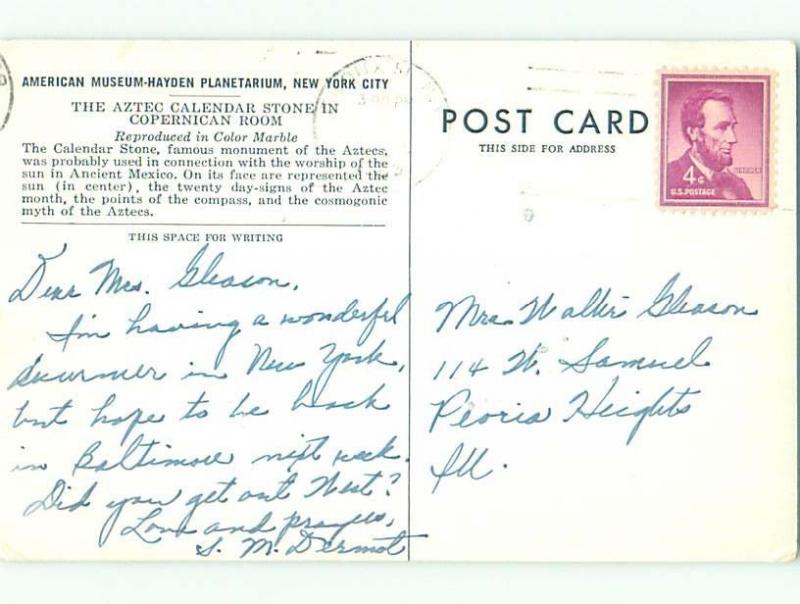 AMERICAN MUSEUM-HAYDEN PLANETARIUM, NEW YORK CITY
THE AZTEC CALENDAR STONE IN
COPERNICAN ROOM
Reproduced in Color Marble
The Calendar Stone, famous monument of the Aztecs,
was probably used in connection with the worship of the
sun in Ancient Mexico. On its face are represented the
sun (in center), the twenty day-signs of the Aztec
month, the points of the compass, and the cosmogonic
myth of the Aztecs.
THIS SPACE FOR WRITING
Dear Mrs. Gleason,
I'm having a wonderful
summer in New York,
but hope to be back
in Baltimore next week.
Did you get out West?
Love and prayers,
S. M. Dermot
POST CARD
THIS SIDE FOR ADDRESS
LINCOLN
4¢
U.S. POSTAGE
Mrs. Walter Gleason
114 W. Samuel
Peoria Heights
Ill.